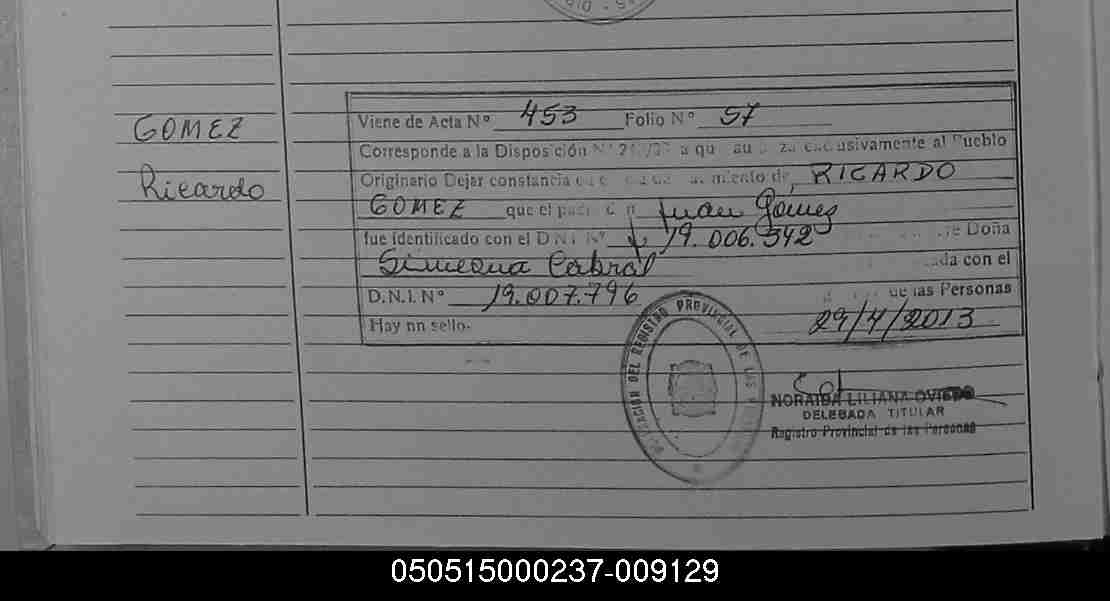 GOMEZ
Ricardo
Viene de Acta Nº 453 Folio Nº 57
Corresponde a la Disposición Nº exclusivamente al Pueblo
Originario Dejar constancia de, RICARDO
GOMEZ que el Juan Gomez
fue identificado con el D.N.I. Nº 19.006.342 Doña
Simeona Cabral con el
D.N.I. Nº 19.007.796 de las Personas
Hay un sello. 29/4/2013
DEL REGISTRO PROVINCIAL DE LAS
NORAIDA LILIANA OVIEDO
DELEGADA TITULAR
Registro Provincial de las Personas
050515000237-009129